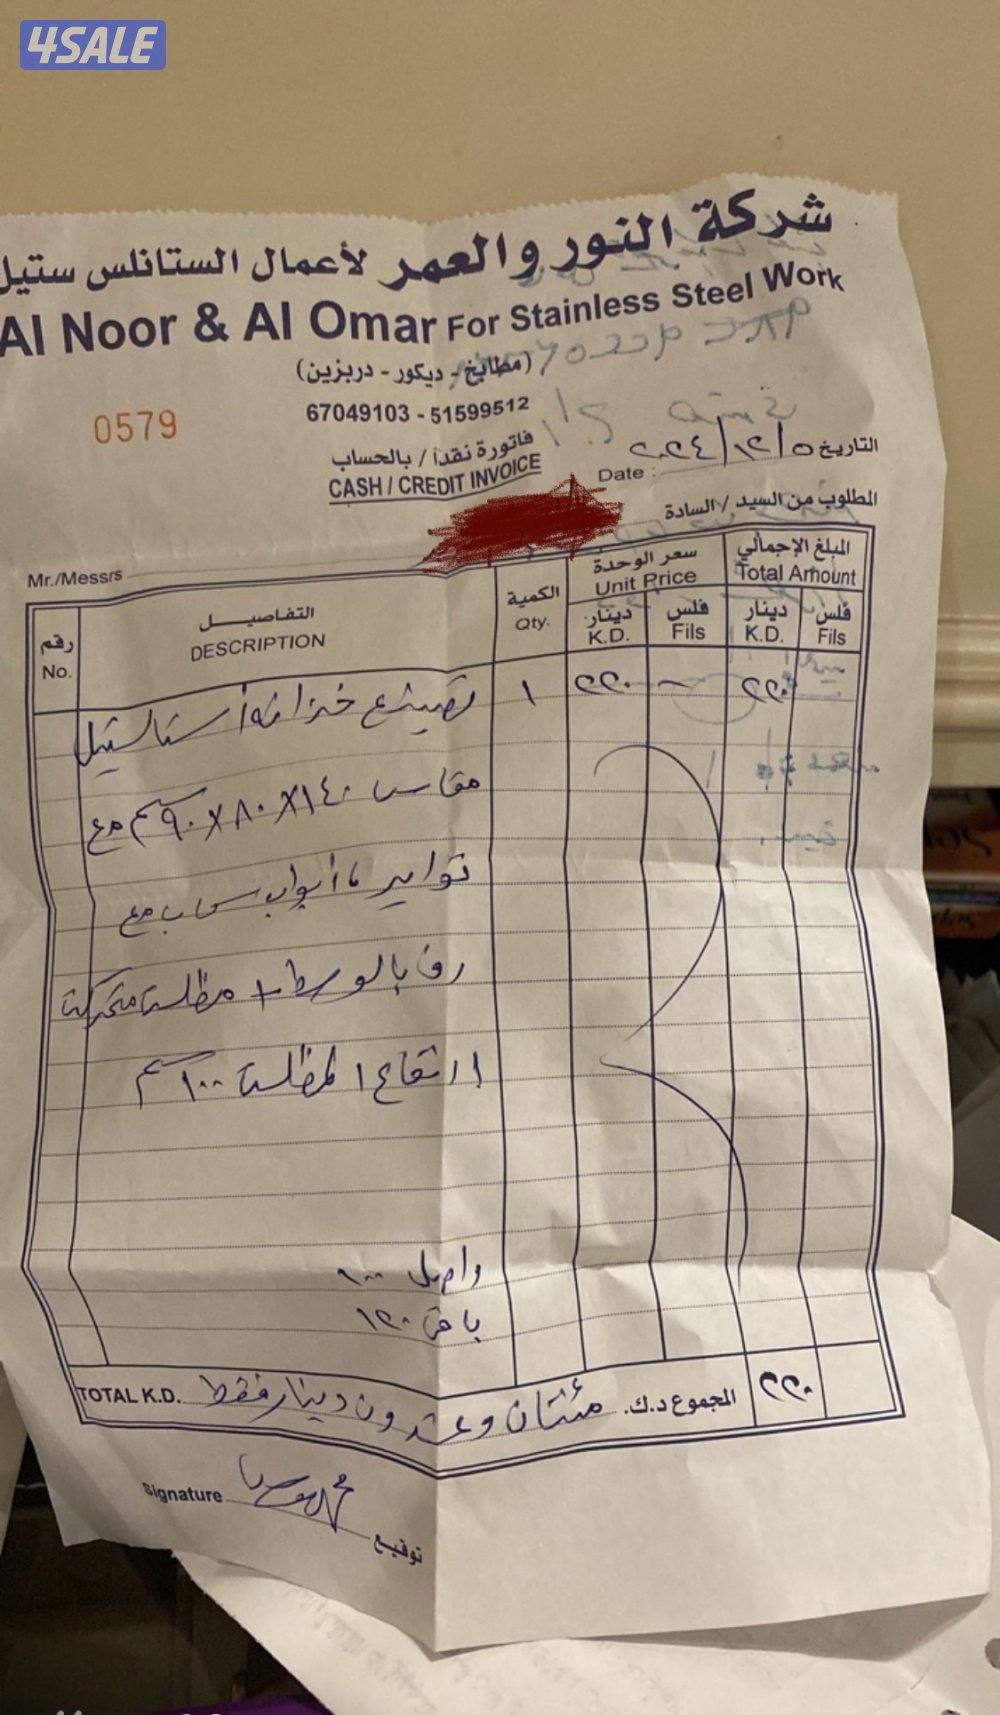 4SALE
شركة النور والعمر لأعمال الستانلس ستيل
Al Noor & Al Omar For Stainless Steel Work
(مطابخ - ديكور - دربزين)
67049103 - 51599512
0579
فاتورة نقداً / بالحساب
CASH / CREDIT INVOICE
التاريخ ٢٠٢٤/١٢/٥
Date :
المطلوب من السيد / السادة
Mr./Messrs
رقم التفاصيل الكمية سعر الوحدة المبلغ الإجمالي
No. DESCRIPTION Qty. Unit Price Total Amount
دينار فلس دينار فلس
K.D. Fils K.D. Fils
تصنيع خزانه استاستيل ١ ٢٢٠ - ٢٢٠
مقاس ١٤٠ X ٨٠ X ٩٠ سم مع
تواير ٤ أبواب سحاب مع
رف بالوسط + مظلة متحركة
ارتفاع المظلة ١٠٠ سم
واصل ١٠٠
باقي ١٢٠
TOTAL K.D. مئتان وعشرون دينار فقط المجموع د.ك. ٢٢٠
Signature توقيع